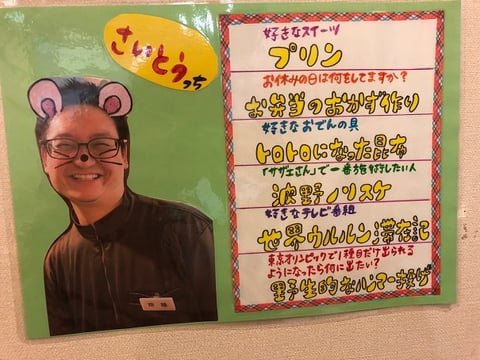 さいとうっち
好きなスイーツ
プリン
お休みの日は何をしてますか？
お弁当のおかず作り
好きなおでんの具
トロトロになった昆布
「サザエさん」で一番したい人
波野ノリスケ
好きなテレビ番組
世界ウルルン滞在記
東京オリンピックで1種目だけ出られる
ようになったら何に出たい？
野生的なハンマー投げ